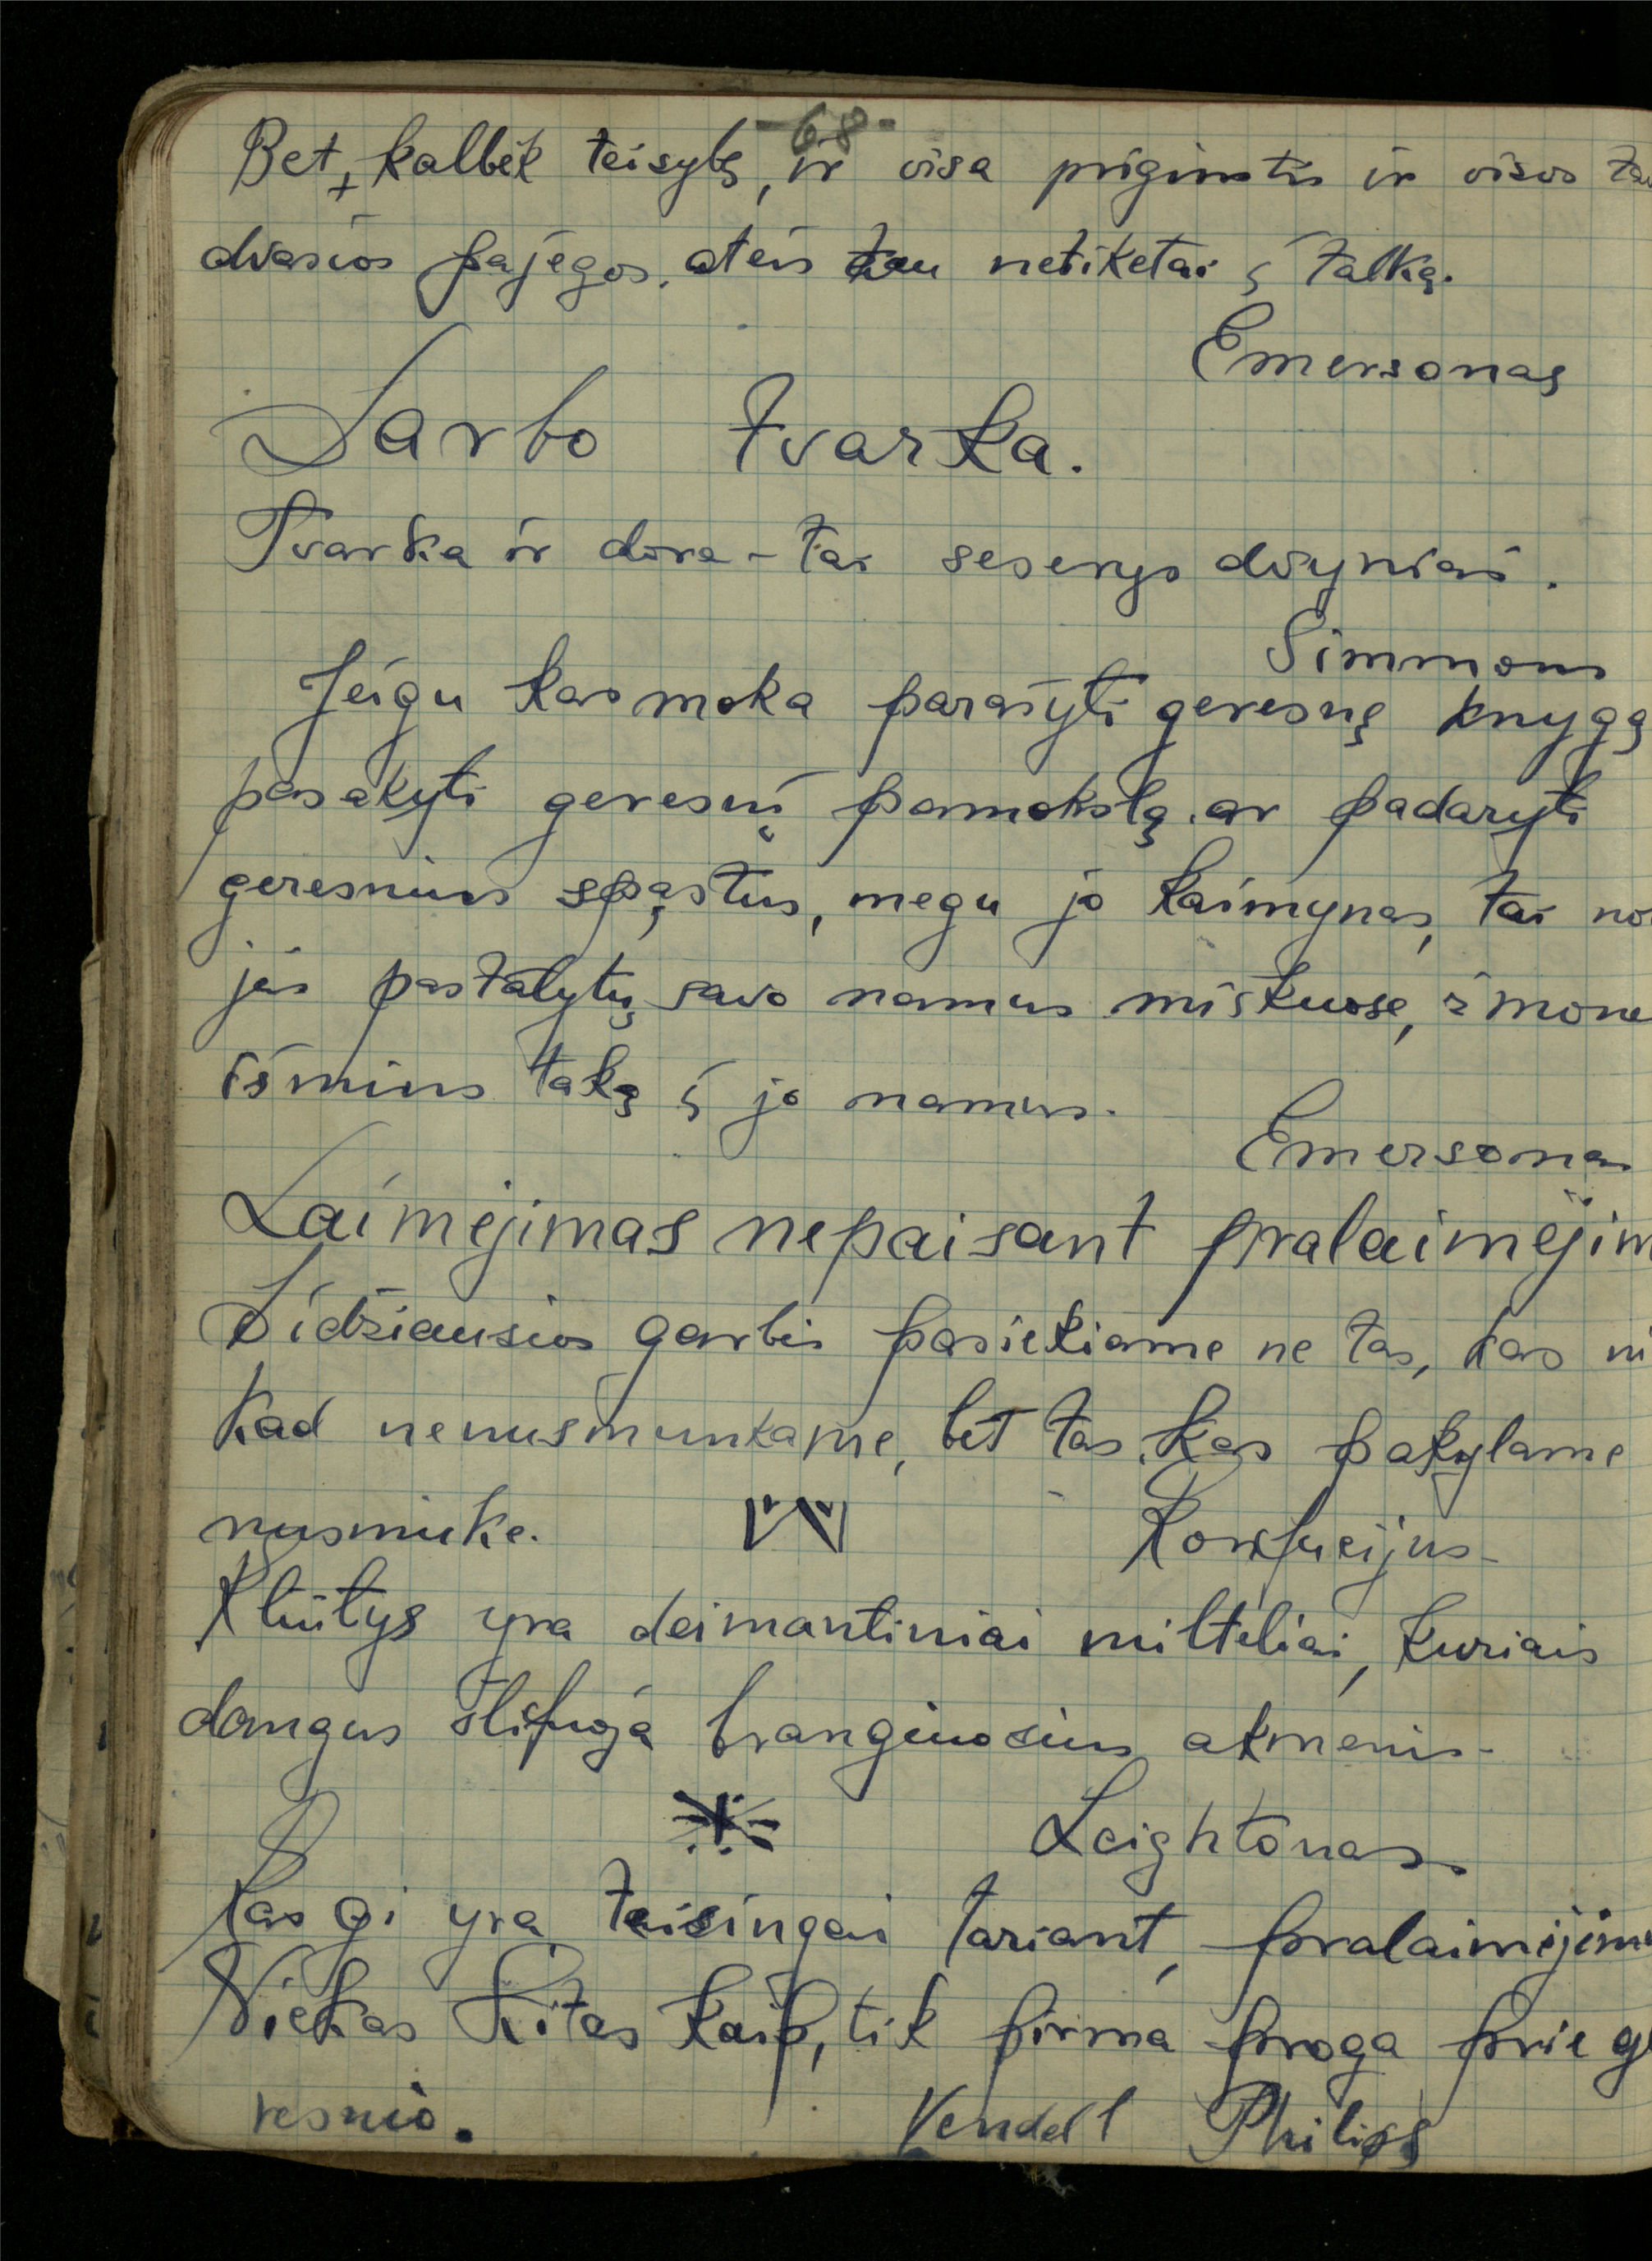 -68-
Bet, kalbėk teisybę, ir visa prigimtis ir visos
dvasios pajėgos, ateis tau netikėtai į talką.
Emersonas
Darbo tvarka.
Tvarka ir dora - tai seserys dvyniai.
Simmons
Jeigu kas moka parašyti geresnę knygą
pasakyti geresnį pamokslą, ar padaryti
geresnius spąstus, negu jo kaimynas, tai
jis pastatytų savo namus miškuose, žmonė
išmins taką į jo namus.
Emersonas
Laimėjimas nepaisant pralaimėjim
Didžiausios garbės pasiekiame ne tas, kas ni
kad nenusmunkame, bet tas, kas pakylame
nusmukę.
Konfucijus-
Kliūtys yra deimantiniai milteliai, kuriais
dangus šlifuoja brangiuosius akmenis-
Leightonas.
Kas gi yra teisingai tariant, pralaimėjima
Niekas kitas kaip, tik pirma proga prie ge
resnio.
Vendell Philips